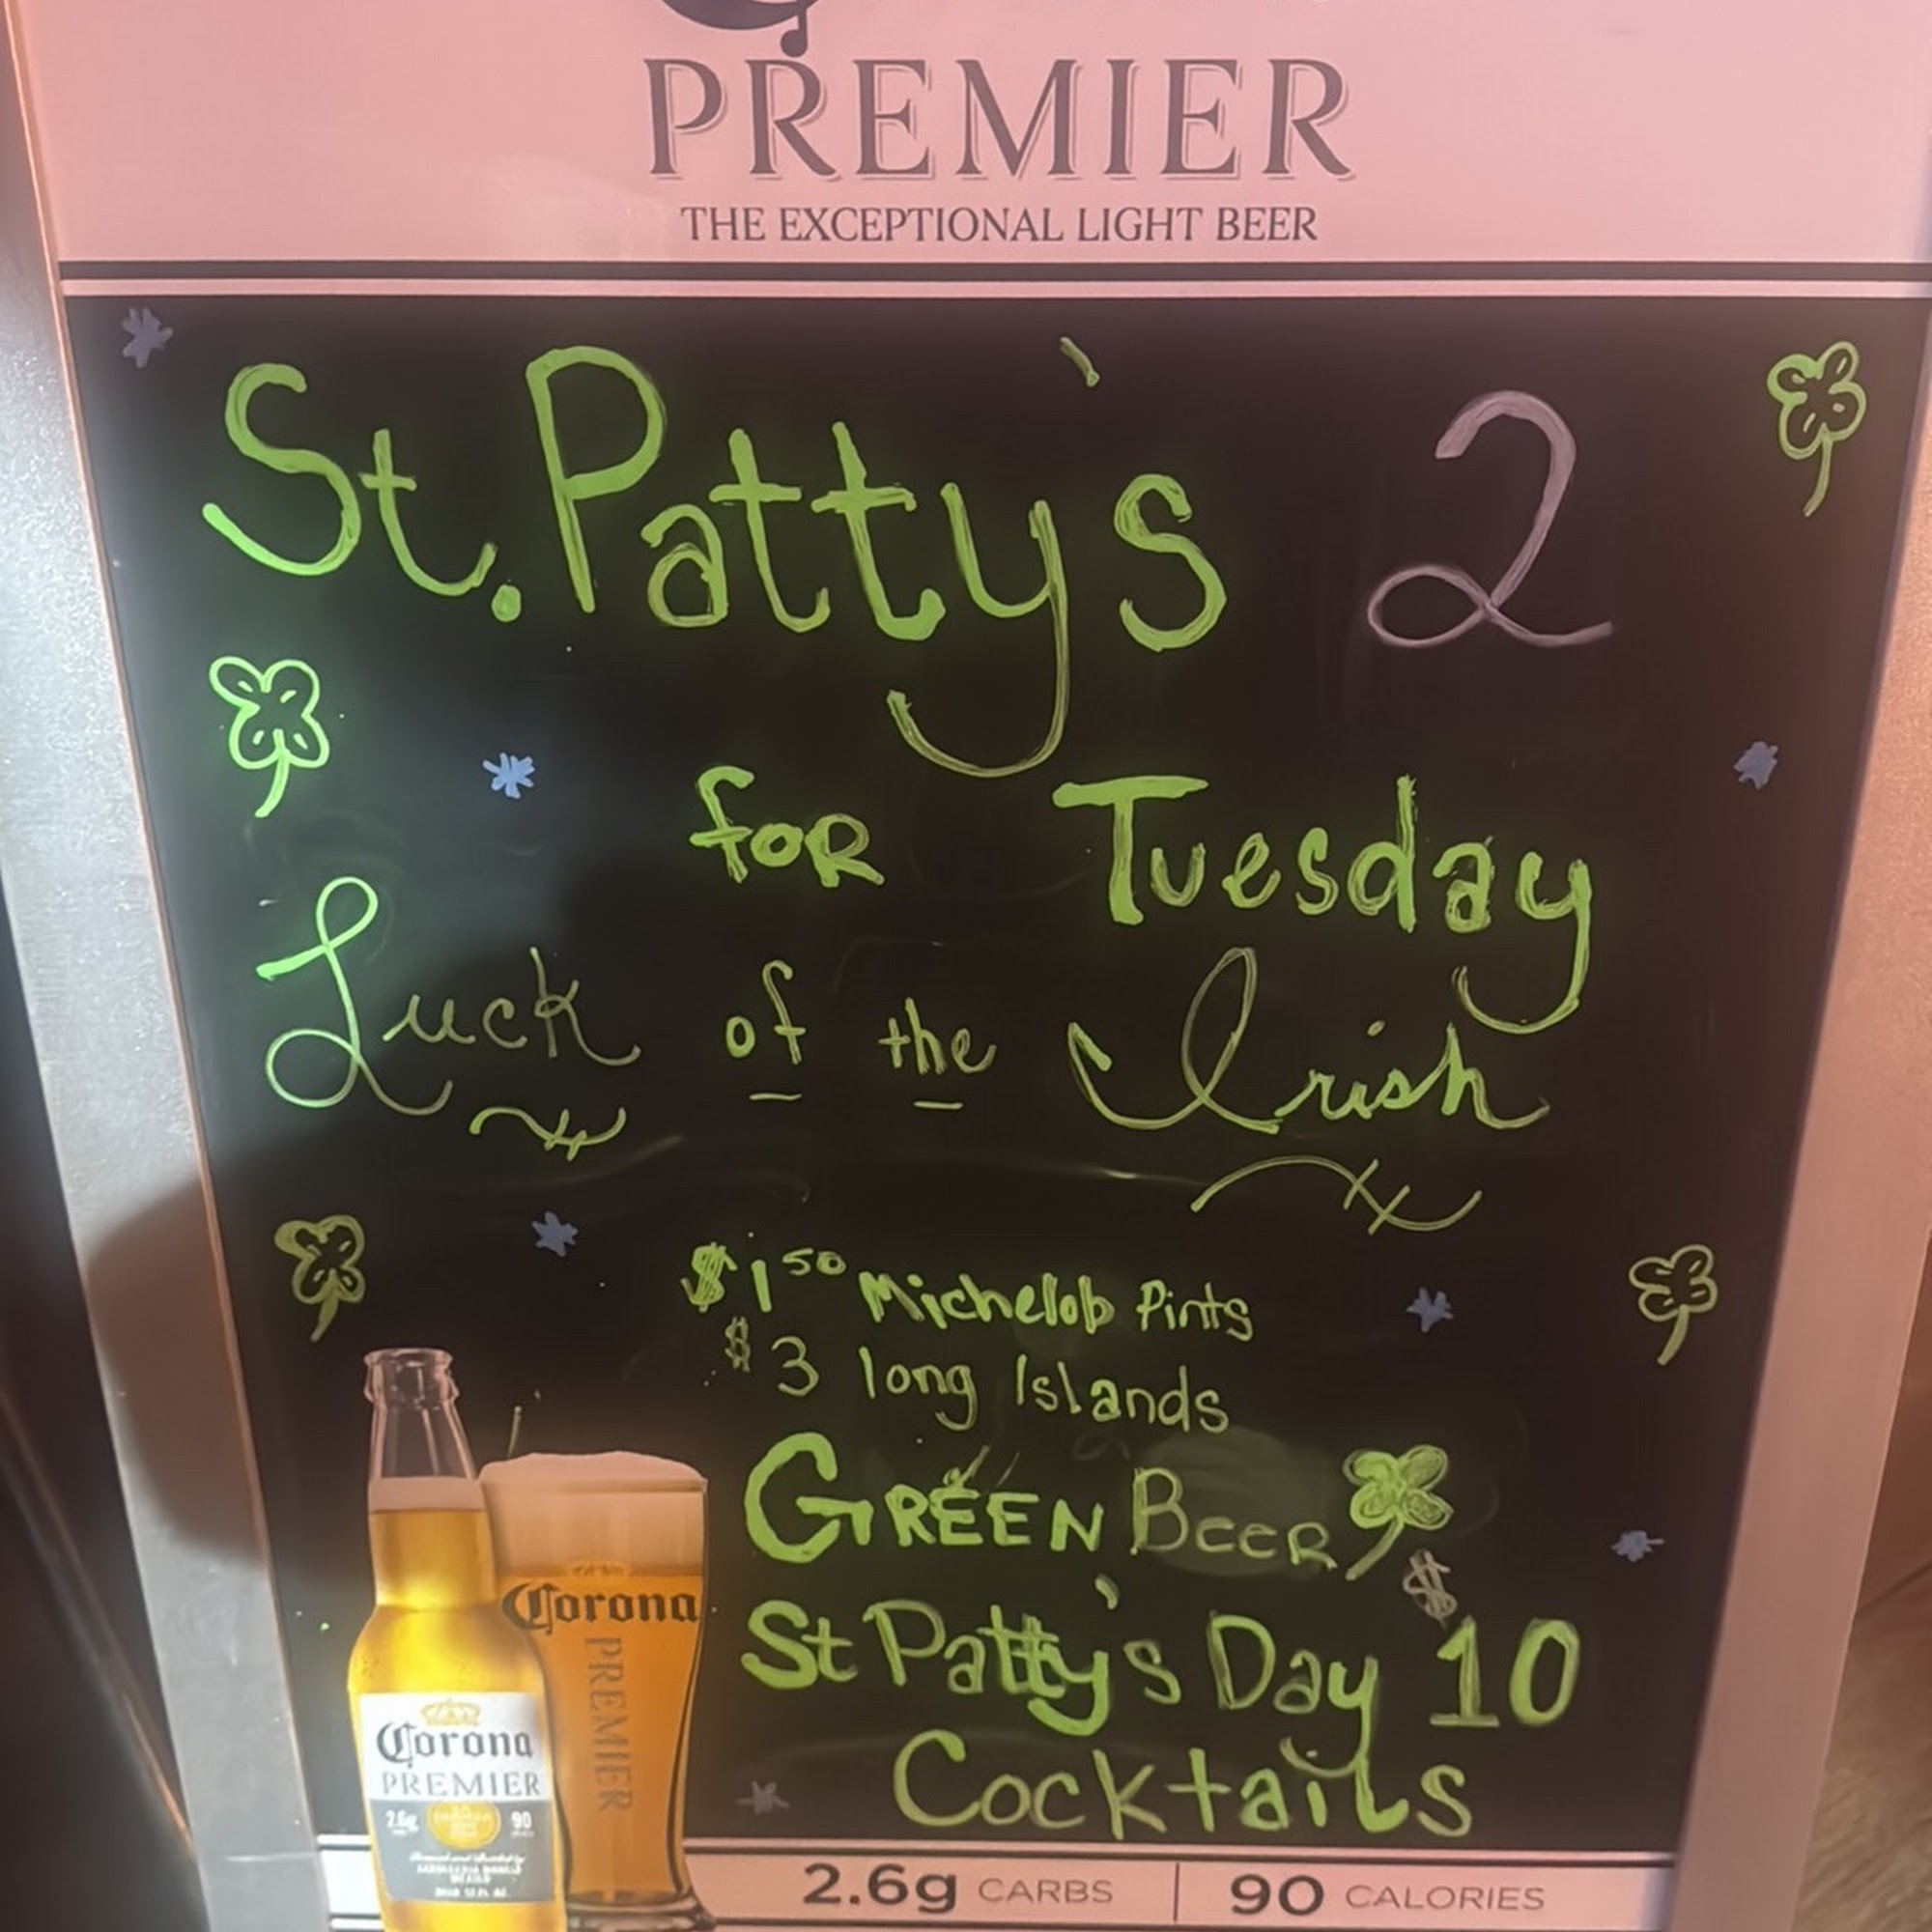 PREMIER
THE EXCEPTIONAL LIGHT BEER
St. Patty's 2
for Tuesday
Luck of the Irish
$1 50 Michelob Pints
$3 long Islands
GREEN BEER
St Patty's Day $10
Cocktails
Corona
PREMIER
Corona
PREMIER
2.6g 90
2.6g CARBS 90 CALORIES